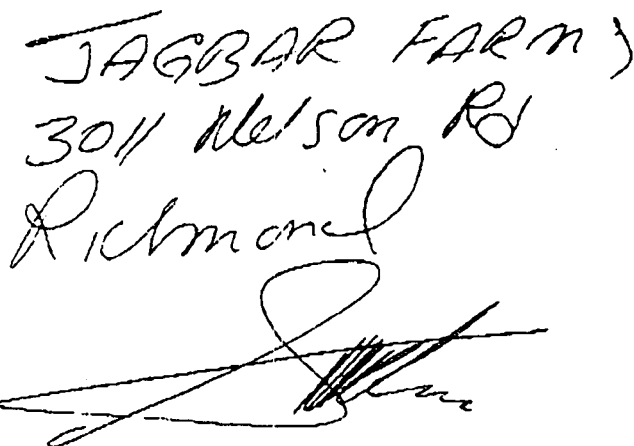 JAGBAR FARMS
3011 Nelson Rd
Richmond